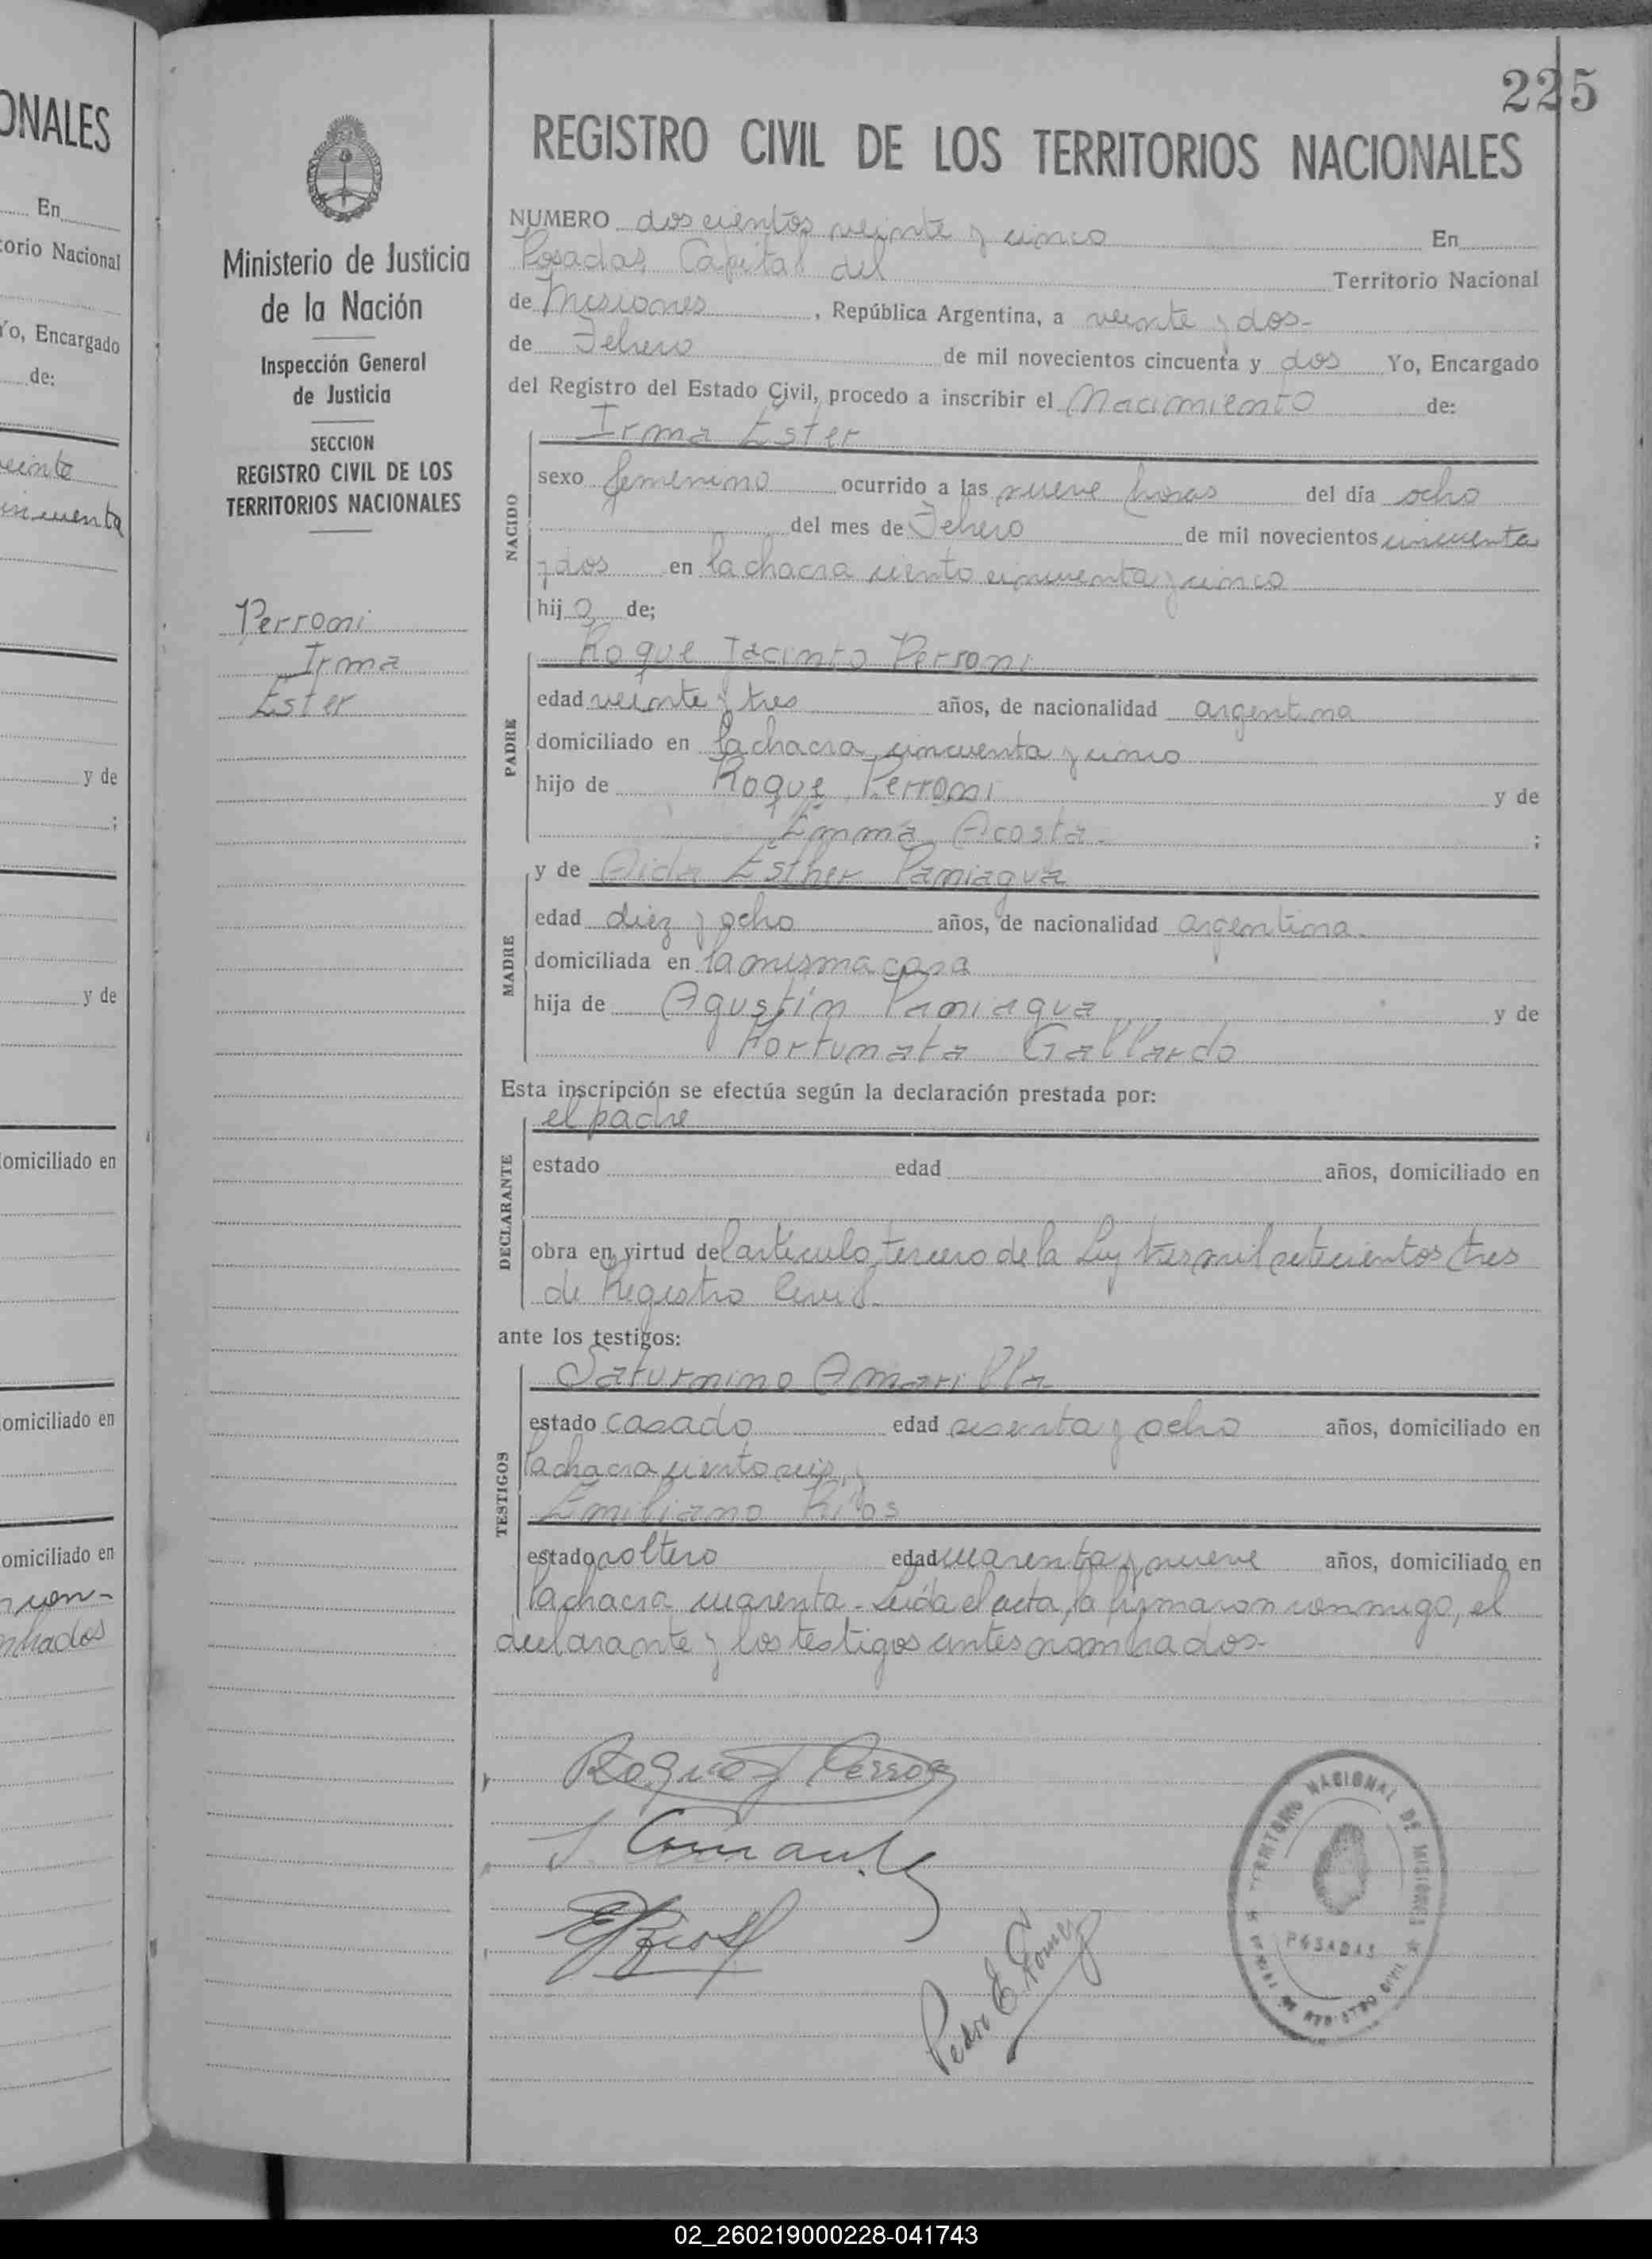 ONALES
En
torio Nacional
Yo, Encargado
de:
veinte
cincuenta
y de
;
y de
domiciliado en
domiciliado en
domiciliado en
con-
nombrados
225
REGISTRO CIVIL DE LOS TERRITORIOS NACIONALES
Ministerio de Justicia
de la Nación
Inspección General
de Justicia
SECCION
REGISTRO CIVIL DE LOS
TERRITORIOS NACIONALES
Perroni
Irma
Ester
NUMERO doscientos veinte y cinco En
Posadas Capital del Territorio Nacional
de Misiones, República Argentina, a veinte y dos-
de Febrero de mil novecientos cincuenta y dos Yo, Encargado
del Registro del Estado Civil, procedo a inscribir el Nacimiento de:
NACIDO
Irma Ester
sexo femenino ocurrido a las nueve horas del día ocho
del mes de Febrero de mil novecientos cincuenta
y dos en la chacra ciento cincuenta y cinco
hija de;
PADRE
Roque Jacinto Perroni
edad veinte y tres años, de nacionalidad argentina
domiciliado en la chacra cincuenta y cinco
hijo de Roque Perroni y de
Emma Acosta- ;
y de Aida Esther Paniagua
MADRE
edad diez y ocho años, de nacionalidad argentina-
domiciliada en la misma casa
hija de Agustín Paniagua y de
Fortunata Gallardo
Esta inscripción se efectúa según la declaración prestada por:
DECLARANTE
el padre
estado edad años, domiciliado en
obra en virtud del artículo tercero de la Ley tres mil setecientos tres
de Registro Civil-
ante los testigos:
TESTIGOS
Saturnino Amarilla
estado casado edad sesenta y ocho años, domiciliado en
la chacra ciento seis, y
Emiliano Ríos
estado soltero edad cuarenta y nueve años, domiciliado en
la chacra cuarenta- Leída el acta, la firmaron conmigo, el
declarante y los testigos antes nombrados-
Roque J Perroni
E Rios
Pedro E. Gomez
TERRITORIO NACIONAL DE MISIONES
POSADAS
REGISTRO CIVIL
02_260219000228-041743